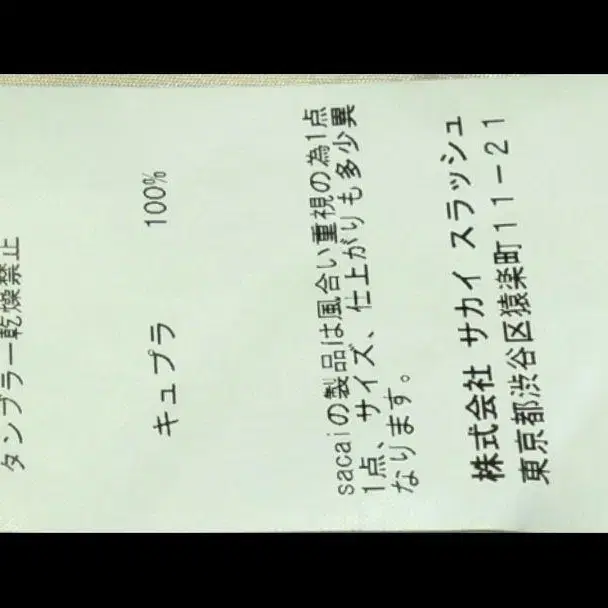 タンブラー乾燥禁止
キュプラ 100%
sacaiの製品は風合い重視の為1点
1点、サイズ、仕上がりも多少異
なります。
株式会社 サカイ スラッシュ
東京都渋谷区猿楽町11-21